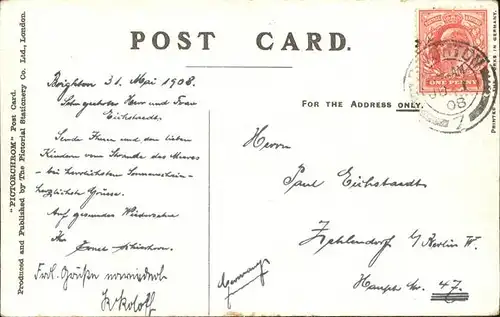 POST CARD.
"PICTORCHROM" Post Card.
Produced and Published by The Pictorial Stationery Co. Ltd., London.
FOR THE ADDRESS ONLY.
ONE PENNY
08
Brighton 31. Mai 1908.
Herr und Frau
Eichstaedt.
Sende Ihnen und den lieben
Kindern vom Strande des Meeres
- bei herrlichstem Sonnenschein -
herzlichste Grüsse.
Auf gesundes Wiedersehn
Ihr
Ernst
Frdl. Grüße
Herrn
Paul Eichstaedt
Zehlendorf b/Berlin W.
47.
Germany